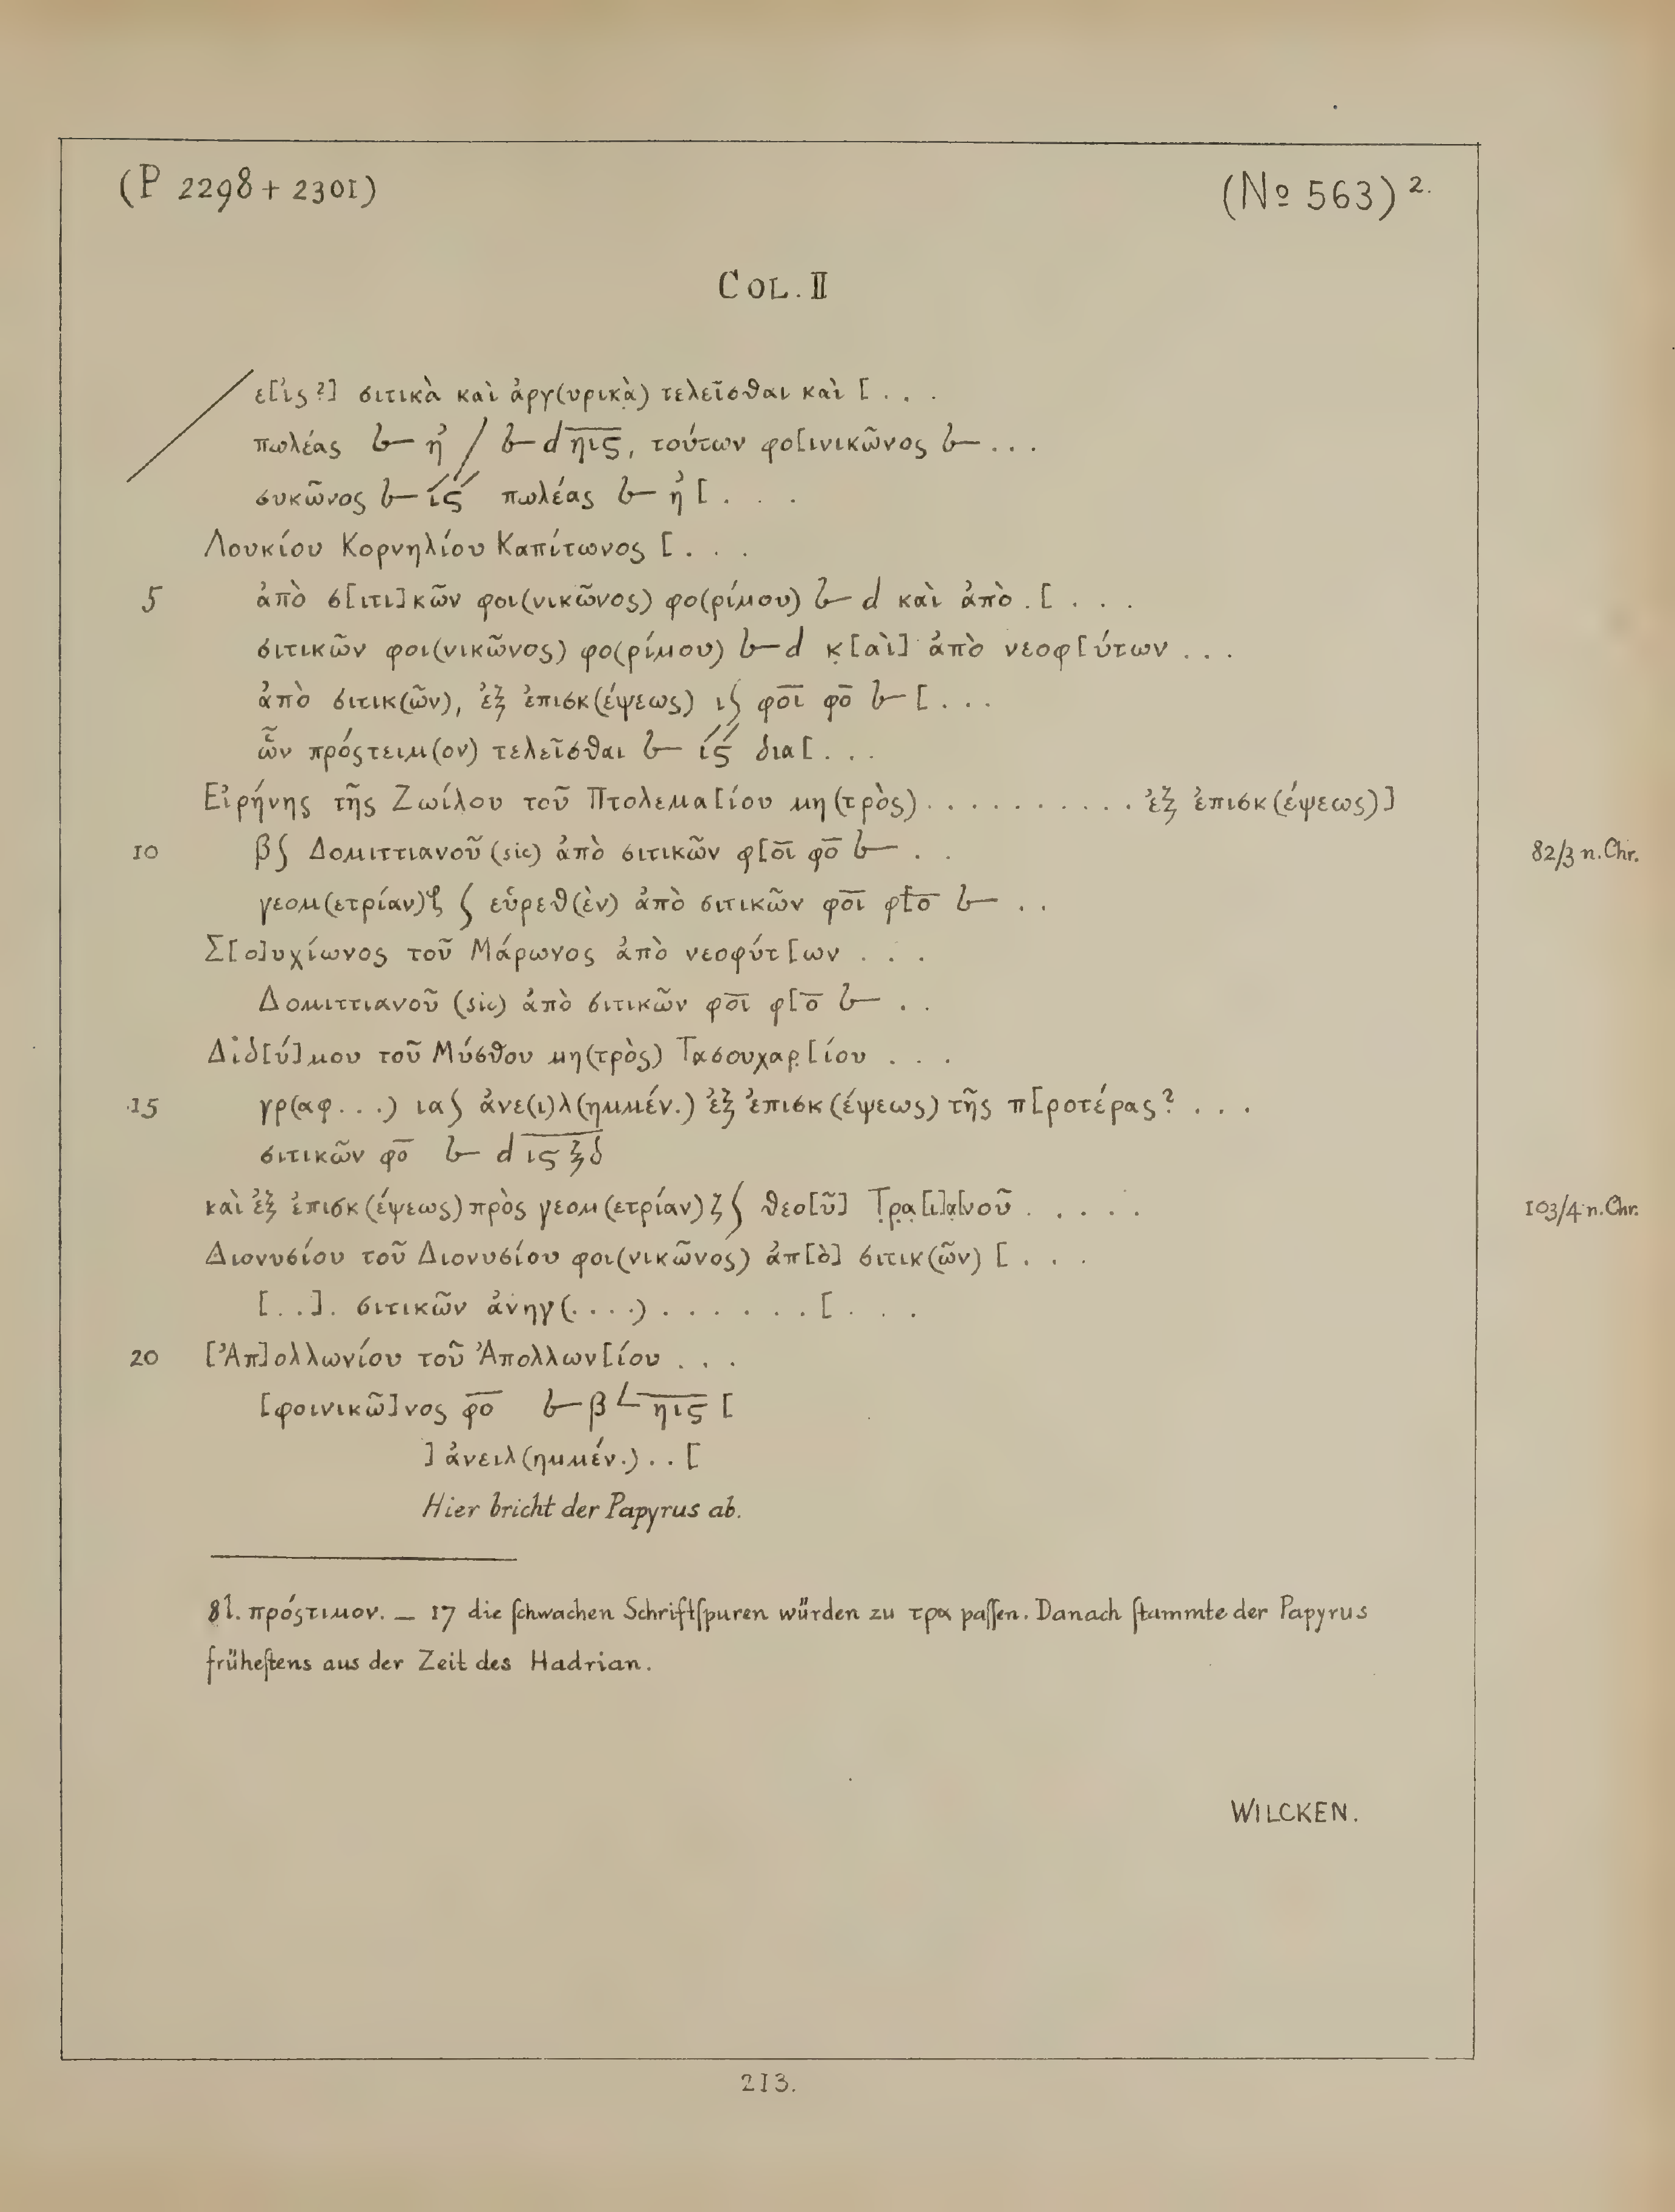 (P 2298 + 2301)
(No 563) 2.
COL. II
ε[ἰς?] σιτικὰ καὶ ἀργ(υρικὰ) τελεῖσθαι καὶ [ . . .
πωλέας 𐅵 ἠ / d η̅ι̅ϛ̅, τούτων φο[ινικῶνος . . .
συκῶνος ιϛ πωλέας ἠ [ . . .
Λουκίου Κορνηλίου Καπίτωνος [ . . .
5 ἀπὸ σ[ιτι]κῶν φοι(νικῶνος) φο(ρίμου) d καὶ ἀπὸ . [ . . .
σιτικῶν φοι(νικῶνος) φο(ρίμου) d κ̣[αὶ] ἀπὸ νεοφ[ύτων . . .
ἀπὸ σιτικ(ῶν), ἐξ ἐπισκ(έψεως) ιʃ φο̅ι̅ φο̅ [ . . .
ὧν πρόςτειμ(ον) τελεῖσθαι ιϛ δια[ . . .
Εἰρήνης τῆς Ζωίλου τοῦ Πτολεμα[ίου μη(τρὸς) . . . . . . . . . . ἐξ ἐπισκ(έψεως)]
10 βʃ Δομιττιανοῦ (sic) ἀπὸ σιτικῶν φ[ο̅ι̅ φο̅ . . 82/3 n. Chr.
γεομ(ετρίαν) ζ ʃ εὑρεθ(ὲν) ἀπὸ σιτικῶν φο̅ι̅ φ[ο̅ . .
Σ[ο]υχίωνος τοῦ Μάρωνος ἀπὸ νεοφύτ[ων . . .
Δομιττιανοῦ (sic) ἀπὸ σιτικῶν φο̅ι̅ φ[ο̅ . .
Διδ[ύ]μου τοῦ Μύσθου μη(τρὸς) Τασουχαρ̣[ίου . . .
15 γρ(αφ. . .) ιαʃ ἀνε(ι)λ(ημμέν.) ἐξ ἐπισκ(έψεως) τῆς π[ροτέρας? . . .
σιτικῶν φο̅ d ι̅ϛ̅ ξ̅δ̅
καὶ ἐξ ἐπισκ(έψεως) πρὸς γεομ(ετρίαν) ζʃ θεο[ῦ] Τ̣ρ̣α̣[ι]α̣[νοῦ . . . . . 103/4 n. Chr.
Διονυσίου τοῦ Διονυσίου φοι(νικῶνος) ἀπ[ὸ] σιτικ(ῶν) [ . . .
[. .]. σιτικῶν ἀνηγ(. . . .) . . . . . . [ . . .
20 [Ἀπ]ολλωνίου τοῦ Ἀπολλων[ίου . . .
[φοινικῶ]νος φο̅ β η̅ι̅ϛ̅ [
] ἀνειλ(ημμέν.) . . [
Hier bricht der Papyrus ab.
8 l. πρόςτιμον. — 17 die ſchwachen Schriftſpuren würden zu τρα paſſen. Danach ſtammte der Papyrus
früheſtens aus der Zeit des Hadrian.
WILCKEN.
213.